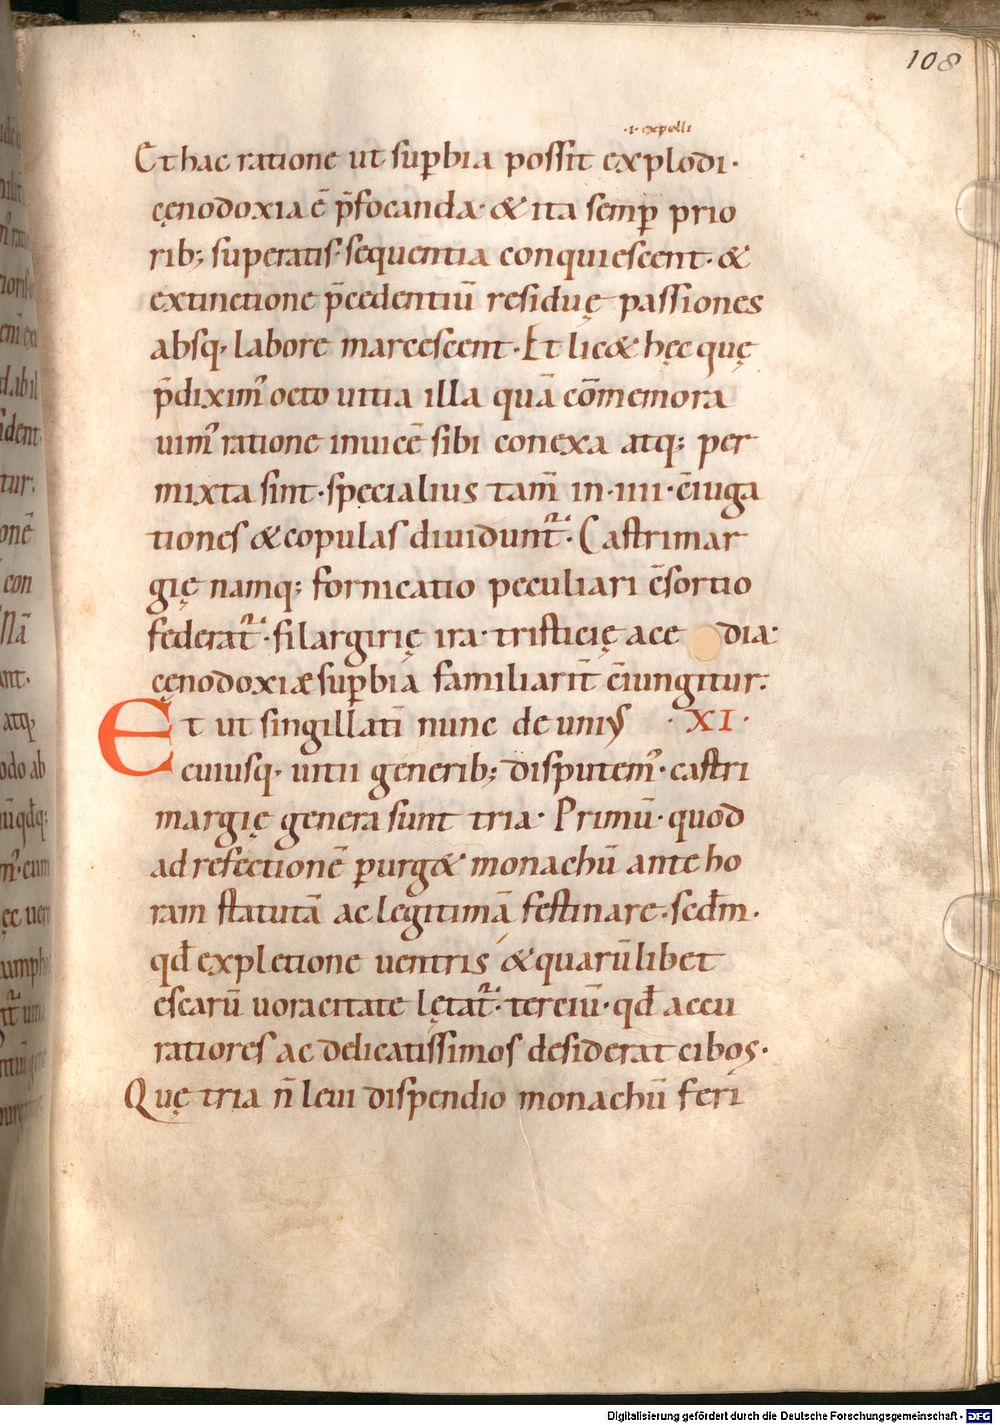 108
·i· expelli
Et hac ratione ut sup̄bia possit explodi·
cęnodoxia ē p̄focanda· & ita semp̄ prio
rib; superatis· sequentia conquiescent· &
extinctione p̄cedentiū residuę passiones
absq· labore marcescent· Et lic& hęc quę
p̄diximꝰ octo uitia illa quā cōmemora
uimꝰ ratione inuicē sibi conexa atq; per
mixta sint· specialius tam̄ in· iiii· c̄iuga
tiones & copulas diuidunt᷑· Castrimar
gię namq; fornicatio peculiari c̄sortio
federat᷑· filargirię ira· tristicię ace dia·
cęnodoxiæ sup̄bia familiarit̄ c̄iungitur·
Et ut singillatī nunc de unius ·XI·
cuiusq· uitii generib; disputemꝰ· castri
margię genera sunt tria· Primū· quod
ad refectionē ꝑurg& monachū ante ho
ram statutā ac legitimā festinare· scd̄m·
qd̄ expletione uentris & quarūlibet
escarū uoracitate lętat᷑· terciū· qd̄ accu
ratiores ac delicatissimos desiderat cibos·
Quę tria n̄ leui dispendio monachū feri
Digitalisierung gefördert durch die Deutsche Forschungsgemeinschaft - DFG